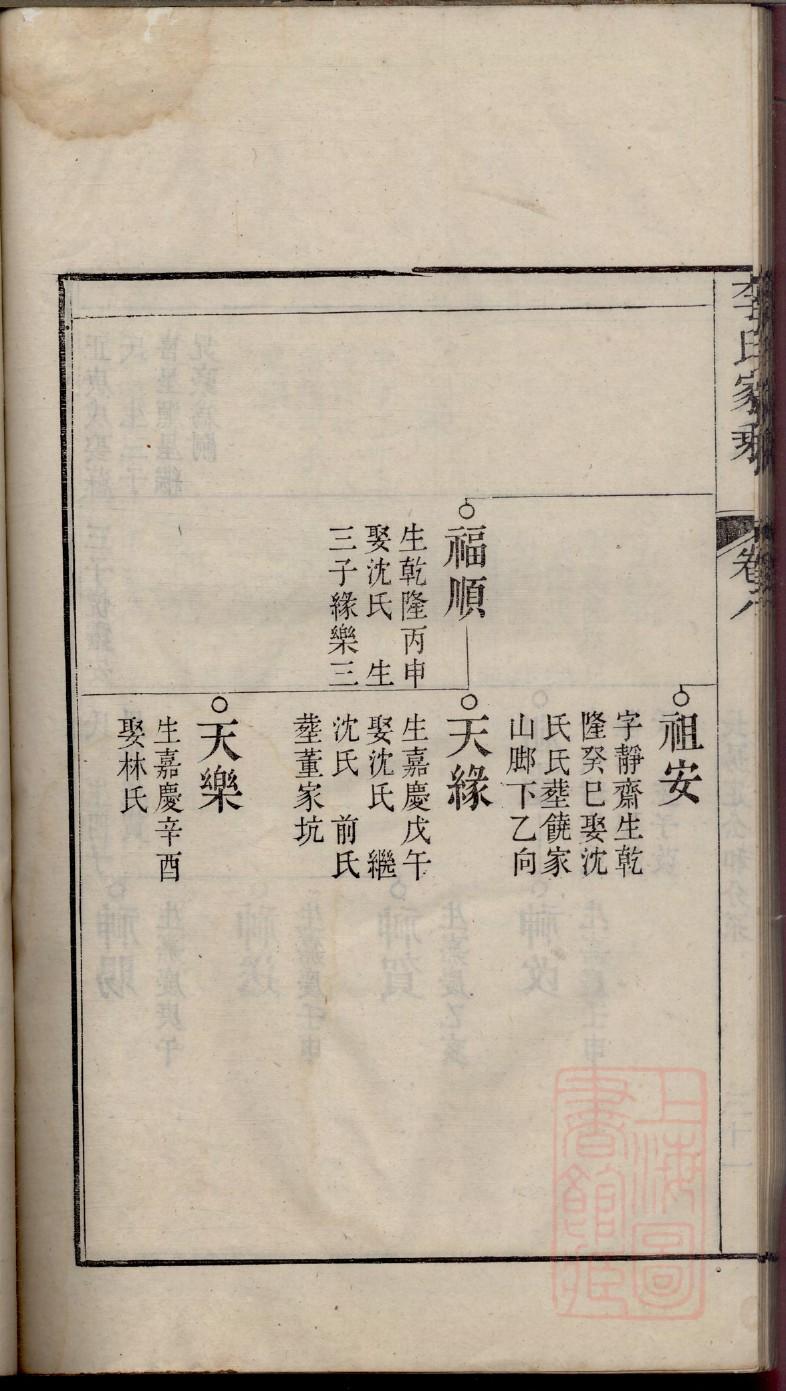 李氏家乘
卷六
祖安
字靜齋生乾
隆癸巳娶沈
氏氏塟饒家
山腳下乙向
福順
生乾隆丙申
娶沈氏 生
三子緣樂三
天緣
生嘉慶戊午
娶沈氏 繼
沈氏 前氏
塟董家坑
天樂
生嘉慶辛酉
娶林氏
上海圖
書館藏